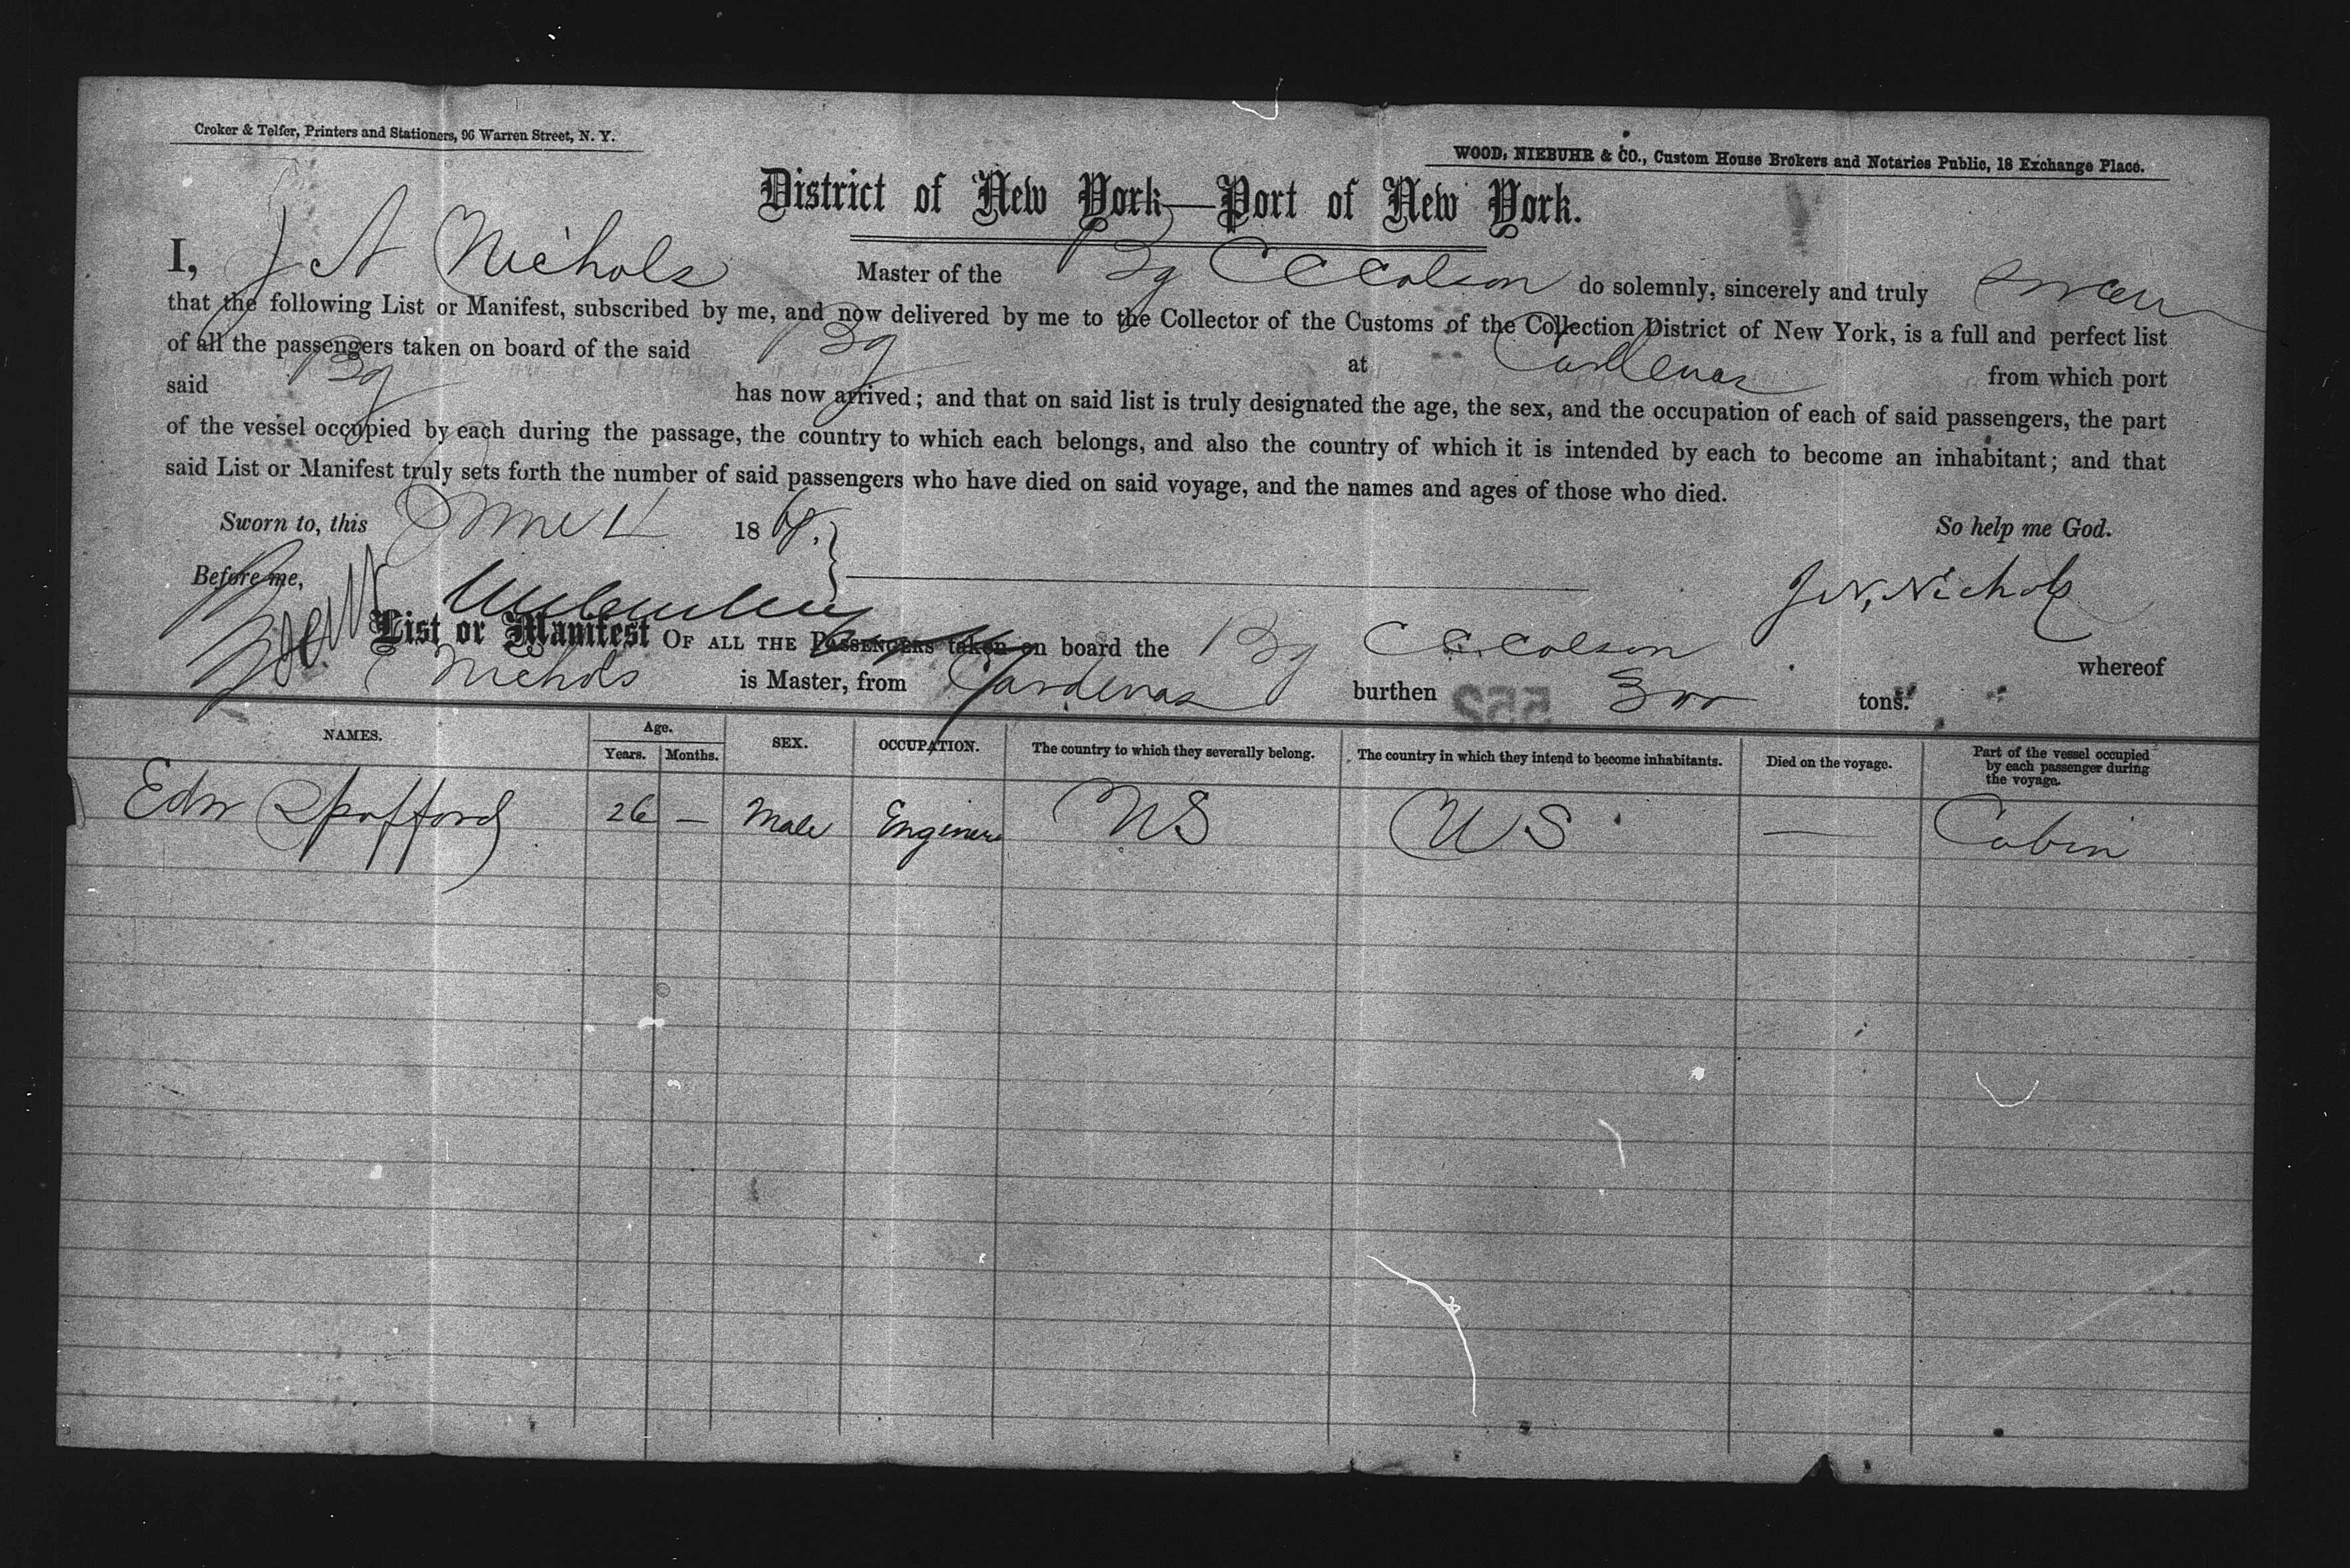 Croker & Telfer, Printers and Stationers, 96 Warren Street, N. Y.
WOOD, NIEBUHR & CO., Custom House Brokers and Notaries Public, 18 Exchange Place.
District of New York—Port of New York.
I, J A Nichols Master of the Bg C C Colson do solemnly, sincerely and truly swear
that the following List or Manifest, subscribed by me, and now delivered by me to the Collector of the Customs of the Collection District of New York, is a full and perfect list
of all the passengers taken on board of the said Bg at Cardenas from which port
said Bg has now arrived; and that on said list is truly designated the age, the sex, and the occupation of each of said passengers, the part
of the vessel occupied by each during the passage, the country to which each belongs, and also the country of which it is intended by each to become an inhabitant; and that
said List or Manifest truly sets forth the number of said passengers who have died on said voyage, and the names and ages of those who died.
Sworn to, this June 186 So help me God.
Before me, Nichols
List or Manifest OF ALL THE PASSENGERS taken on board the Bg C C Colson whereof
Nichols is Master, from Cardenas burthen tons.
NAMES. Age. Years. Months. SEX. OCCUPATION. The country to which they severally belong. The country in which they intend to become inhabitants. Died on the voyage. Part of the vessel occupied by each passenger during the voyage.
Edw Spofford 26 — Male Engineer US US — Cabin